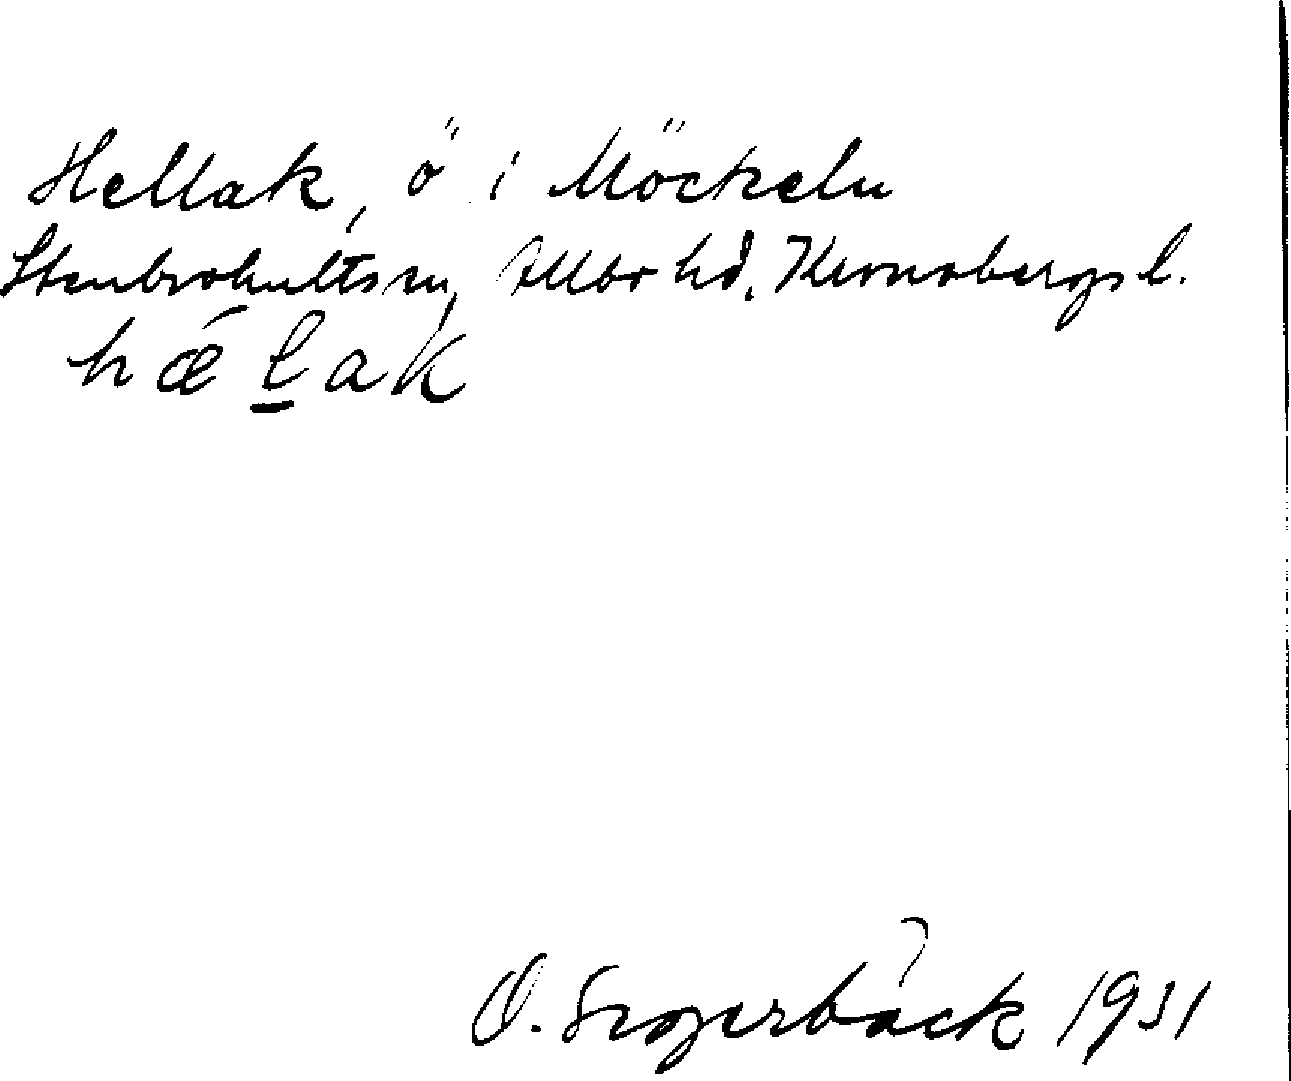 Hellak, ö i Möckeln
Stenbrohults sn, Allbo hd, Kronobergs l.
hǽl̲ak
O. Segerbäck 1931